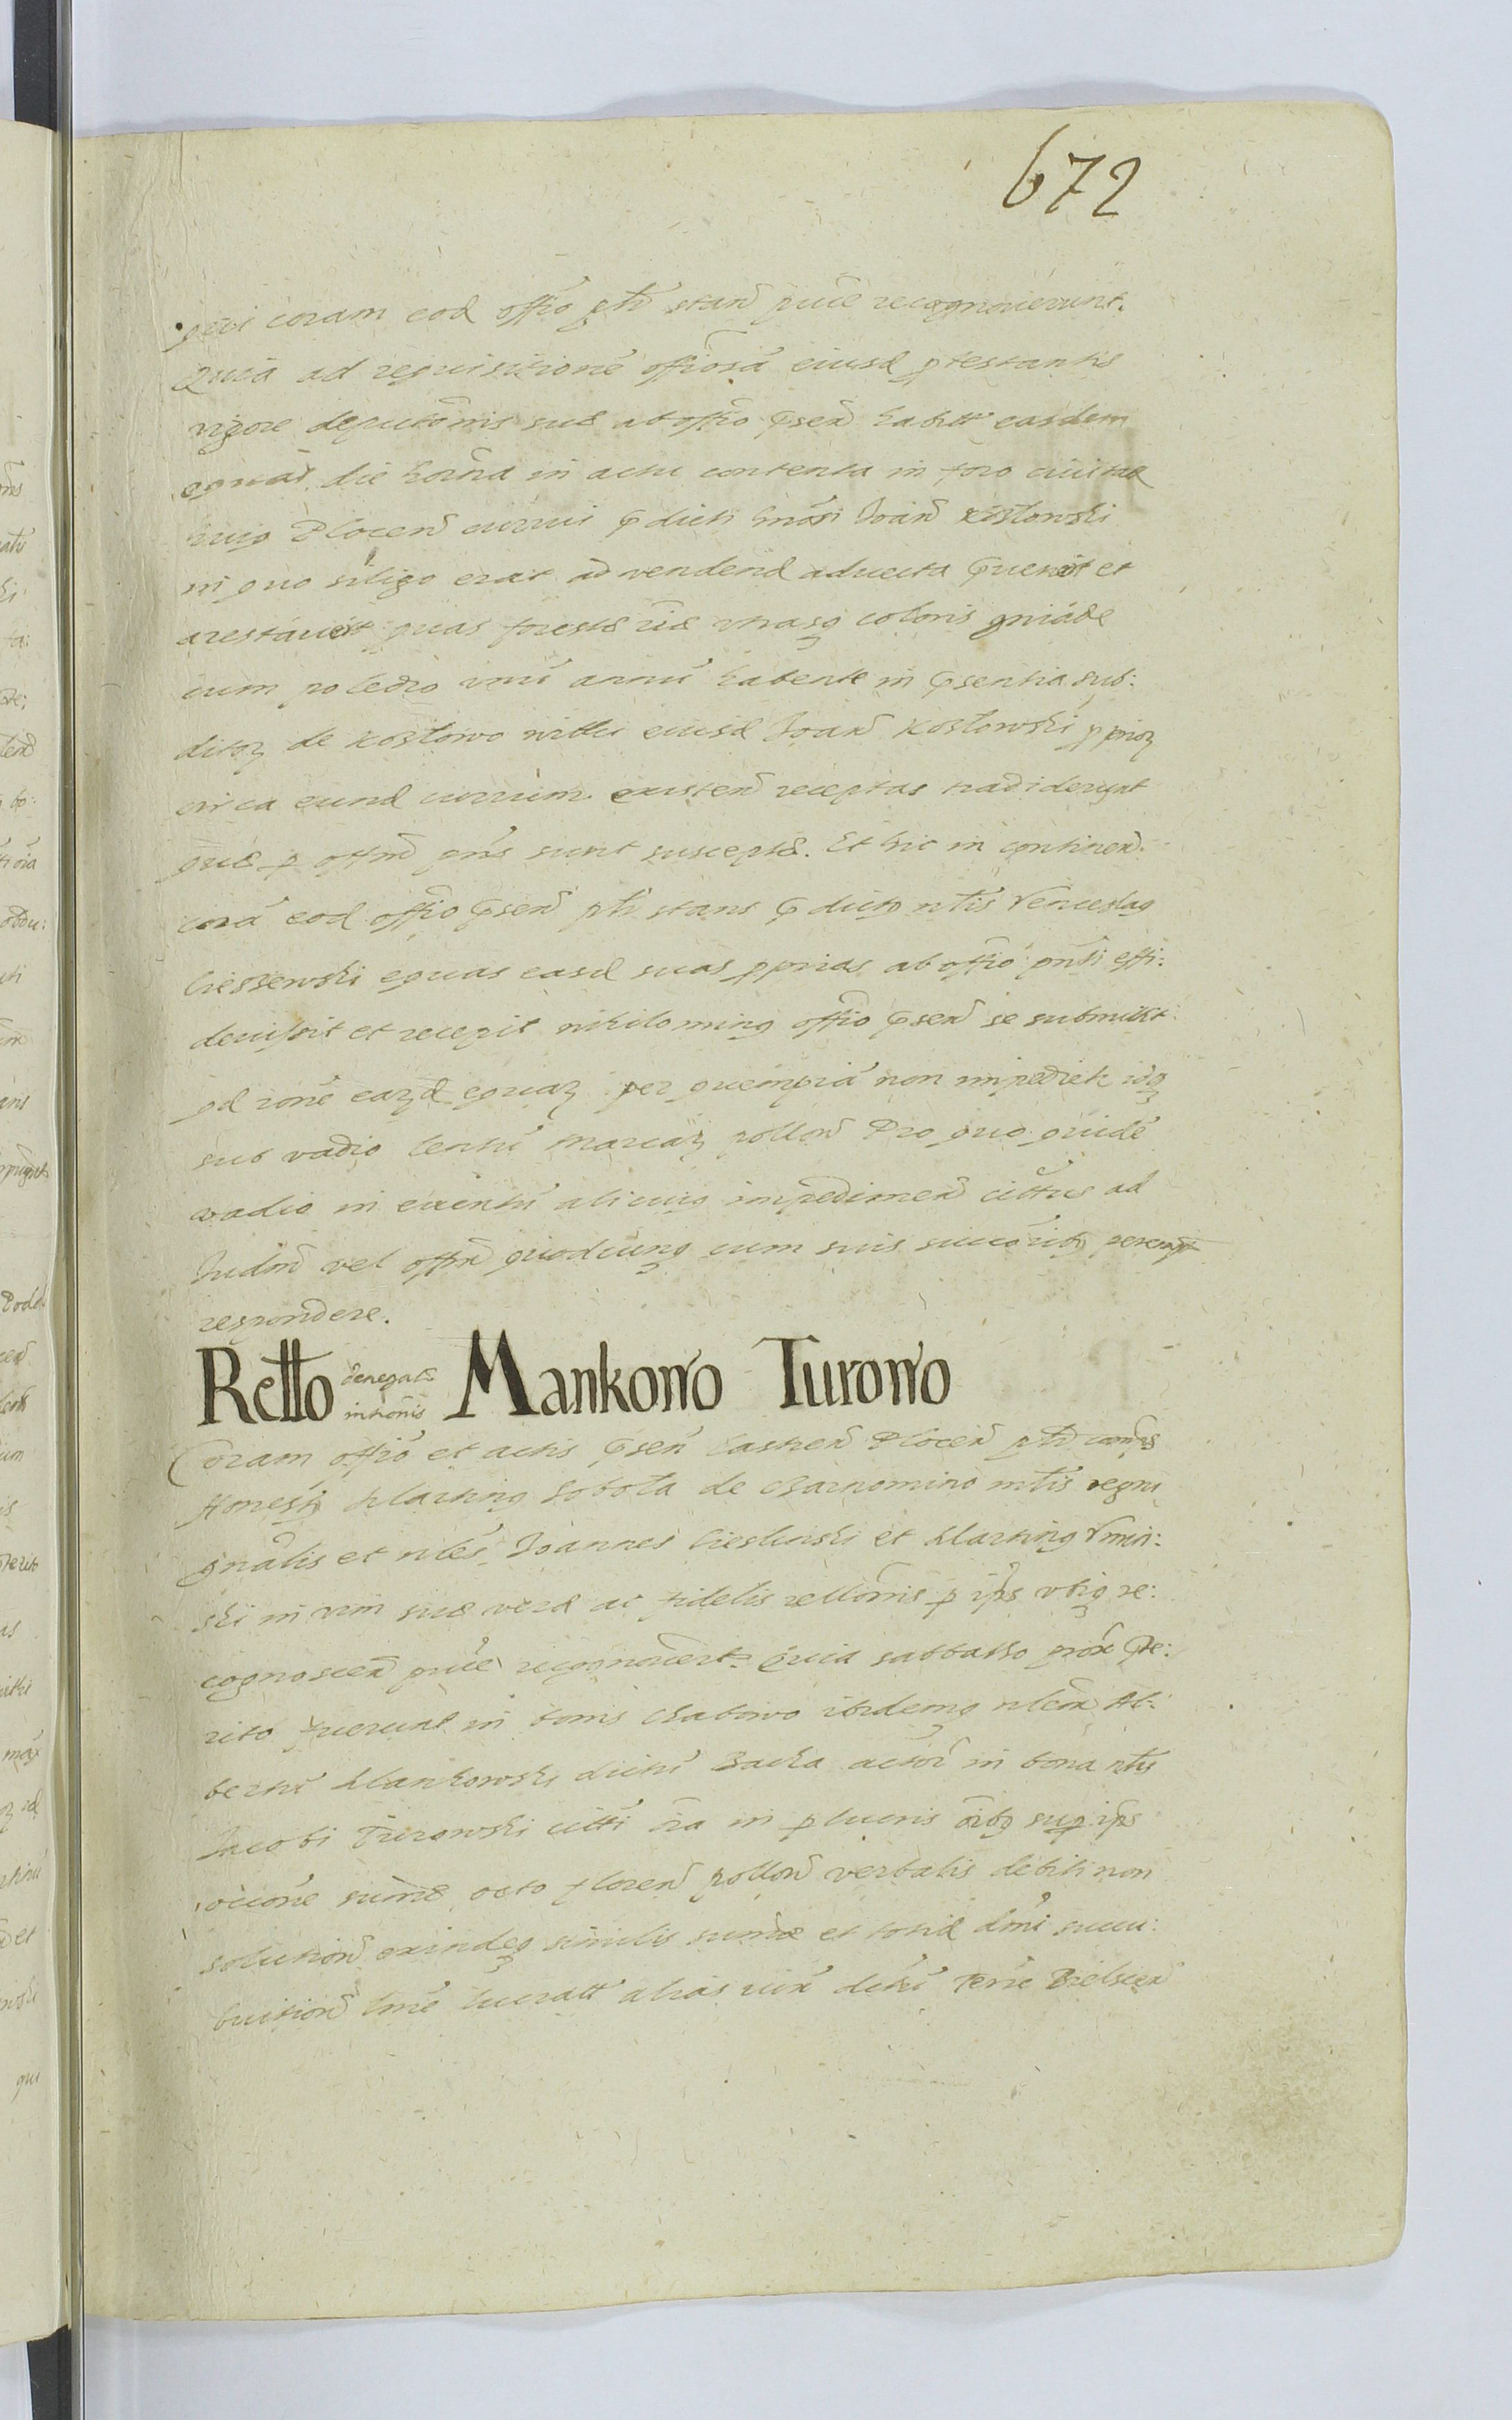 672
qui coram eod offio ptr stand puce recognoverunt.
Quia ad requisitione offiosa eiusd ptestantis
vigore deputonis suæ ab offio pnsen habitæ easdem
equas die hodrna in actu contenta in foro civitatæ
huiq Plocen currui pdicti gnosi Joan Kozlowski
in quo siligo erat ad vendend advecta pvenit et
arestavert quas forestæ viæ utrasq coloris gniade
cum poledro unu annu habente in psentia sub:
ditor de Kozlowo villa eiusd Joan Kozlowski pprior
circa eund currum existen receptas tradiderunt
quæ p offm pns sunt susceptæ. Et hic in continen.
cora eod offio psen ptr stans pdictq nlis Venceslaq
Ciessewski equas easd suas pprias ab offio pnsti effi:
devissit et recepit nihilominq offio psen se submitt
qd rone earud equar per quempia non impediet idq
sub vadio centu marcar pollon Pro quo quide
vadio in eventu alicuiq impedimen cittus ad
Judm vel offm quodcunq cum suis succorib perempt
respondere.
Retto denegat intronis Mankowo Turowo
Coram offio et actis psen Castren Plocen ptr compns
Honestq Martinq Sobota de Czarnomino mtis regni
gnralis et nles Joannes Cieslinski et Martinq Vmin:
ski in vim suæ veræ ac fidelis rellonis p ips utiq re:
cognoscen puce recognovert. Quia sabbatho prox pte:
rito fuerunt in bonis Chabowo ibidemq nlem Al:
bertu Mankowski dictu Backa actor in bona nlis
Jacobi Turowski citti ora in pluens oribq sup ips
occone sumæ octo floren pollon verbalis debiti non
solution exindeq similis sumæ et totid dmi succu:
buition lme lucratt alias iux detu Terre Bielscen